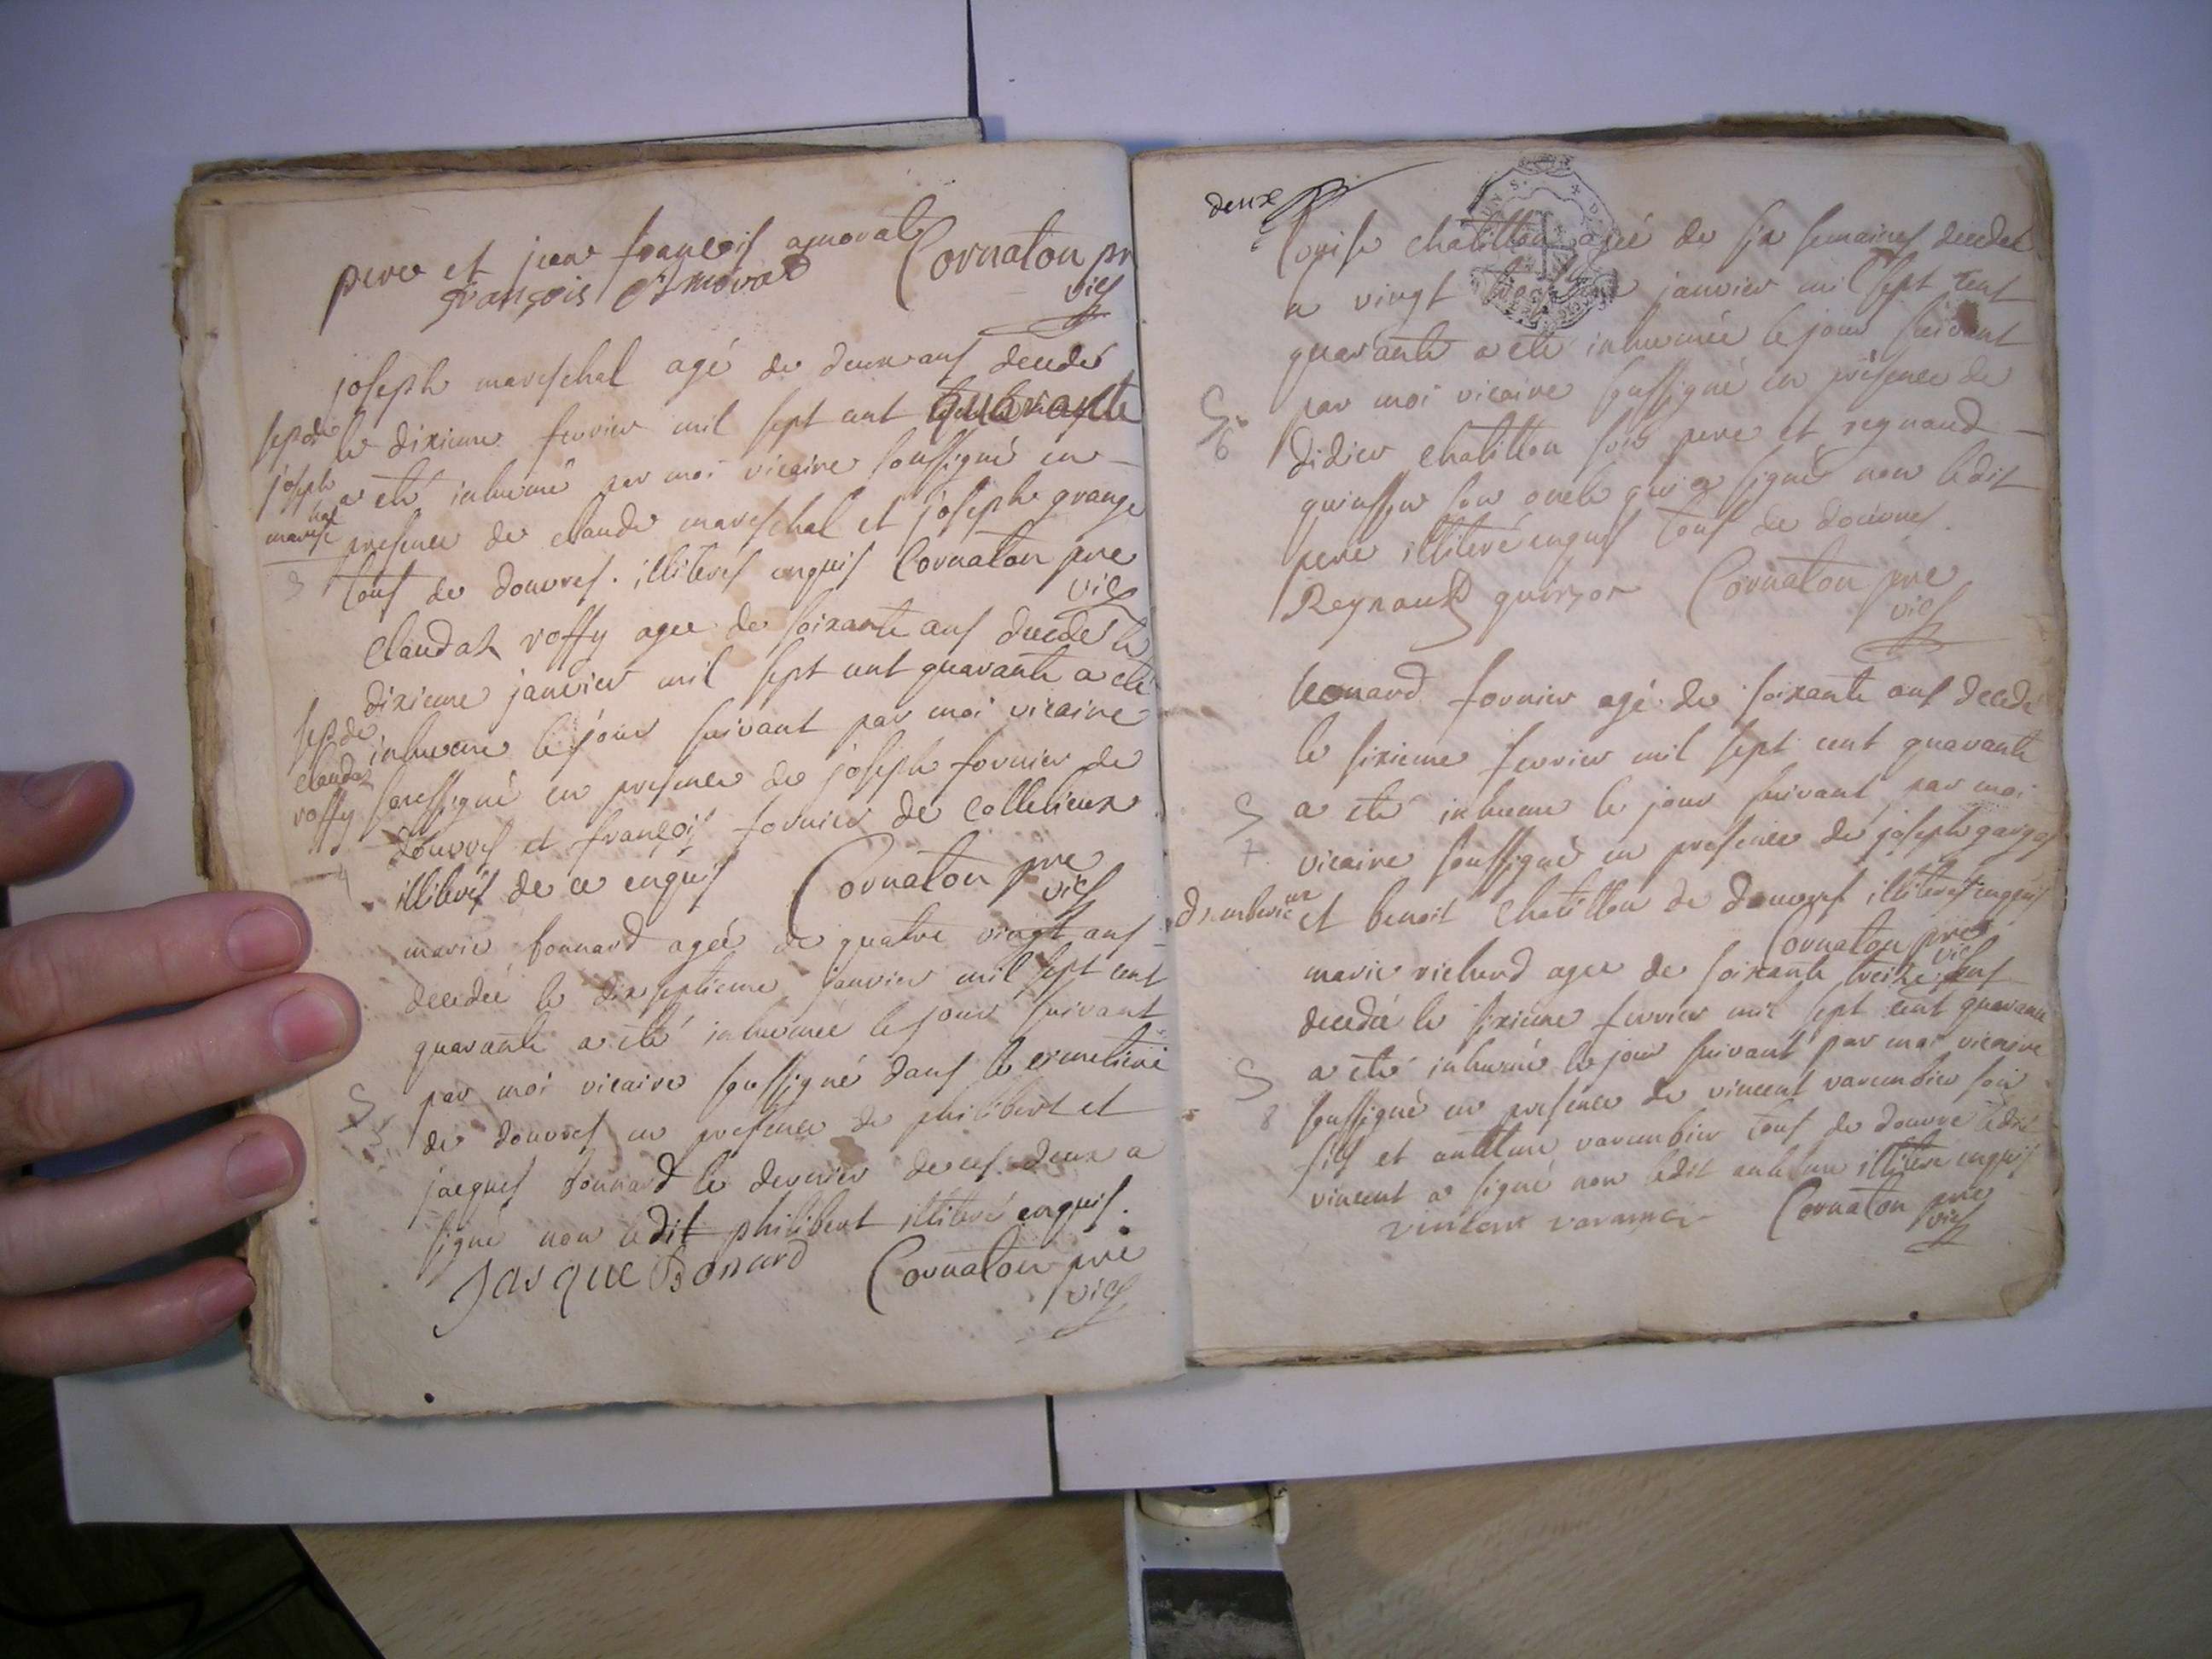 pere et jean françois amorat
François Amorat Cornaton pr
vics
joseph mareschal agé de deux ans decedé
le dixieme fevrier mil sept cent quarante
a eté inhumé par moi vicaire soussigné en
presence de claude mareschal et joseph grange
tous de douvres. illiterés enquis Cornaton pre
vics
sep de
joseph
maresc
hal
3
Claudaz roffy agee de soixante ans decedeé le
dixieme janvier mil sept cent quarante a eté
inhumeé le jour suivant par moi vicaire
soussigné en presence de joseph fornier de
douvres et françois fornier de Collelieux
illiterés de ce enquis Cornaton pre
vics
sep de
claudaz
roffy
4
marie bonnard ageé de quatre vingt ans
decedeé le dix septieme janvier mil sept cent
quarante a eté inhumeé le jour suivant
par moi vicaire soussigné dans le cimetiere
de douvres en presence de philibert et
jacques bonnard le dernier de ces deux a
signé non ledit philibert illiteré enquis.
Jacque Bonard Cornaton pre
vics
S
5
deux
louise chatillon ageé de six semaines decedeé
a vingt janvier mil sept cent
quarante a eté inhumeé le jour suivant
par moi vicaire soussigné en présence de
didier chatillon son pere et reynaud
quinson son oncle qui a signé non ledit
pere illiteré enquis tous de douvres.
Reynaud quinson Cornaton pre
vics
S
6
leonard fornier agé de soixante ans decedé
le sixieme fevrier mil sept cent quarante
a eté inhumé le jour suivant par moi
vicaire soussigné en presence de joseph
et benoit chatillon de douvres illiterés enquis
Cornaton pre
vics
S
7
d'amberieux
marie richerd agee de soixante treize ans
decedeé le sixieme fevrier mil sept cent quarante
a eté inhumé le jour suivant par moi vicaire
soussigné en presence de vincent varembier son
fils et antelme varembier tous de douvre ledit
vincent a signé non ledit antelme illiteré enquis
vincent Cornaton pre
vics
S
8